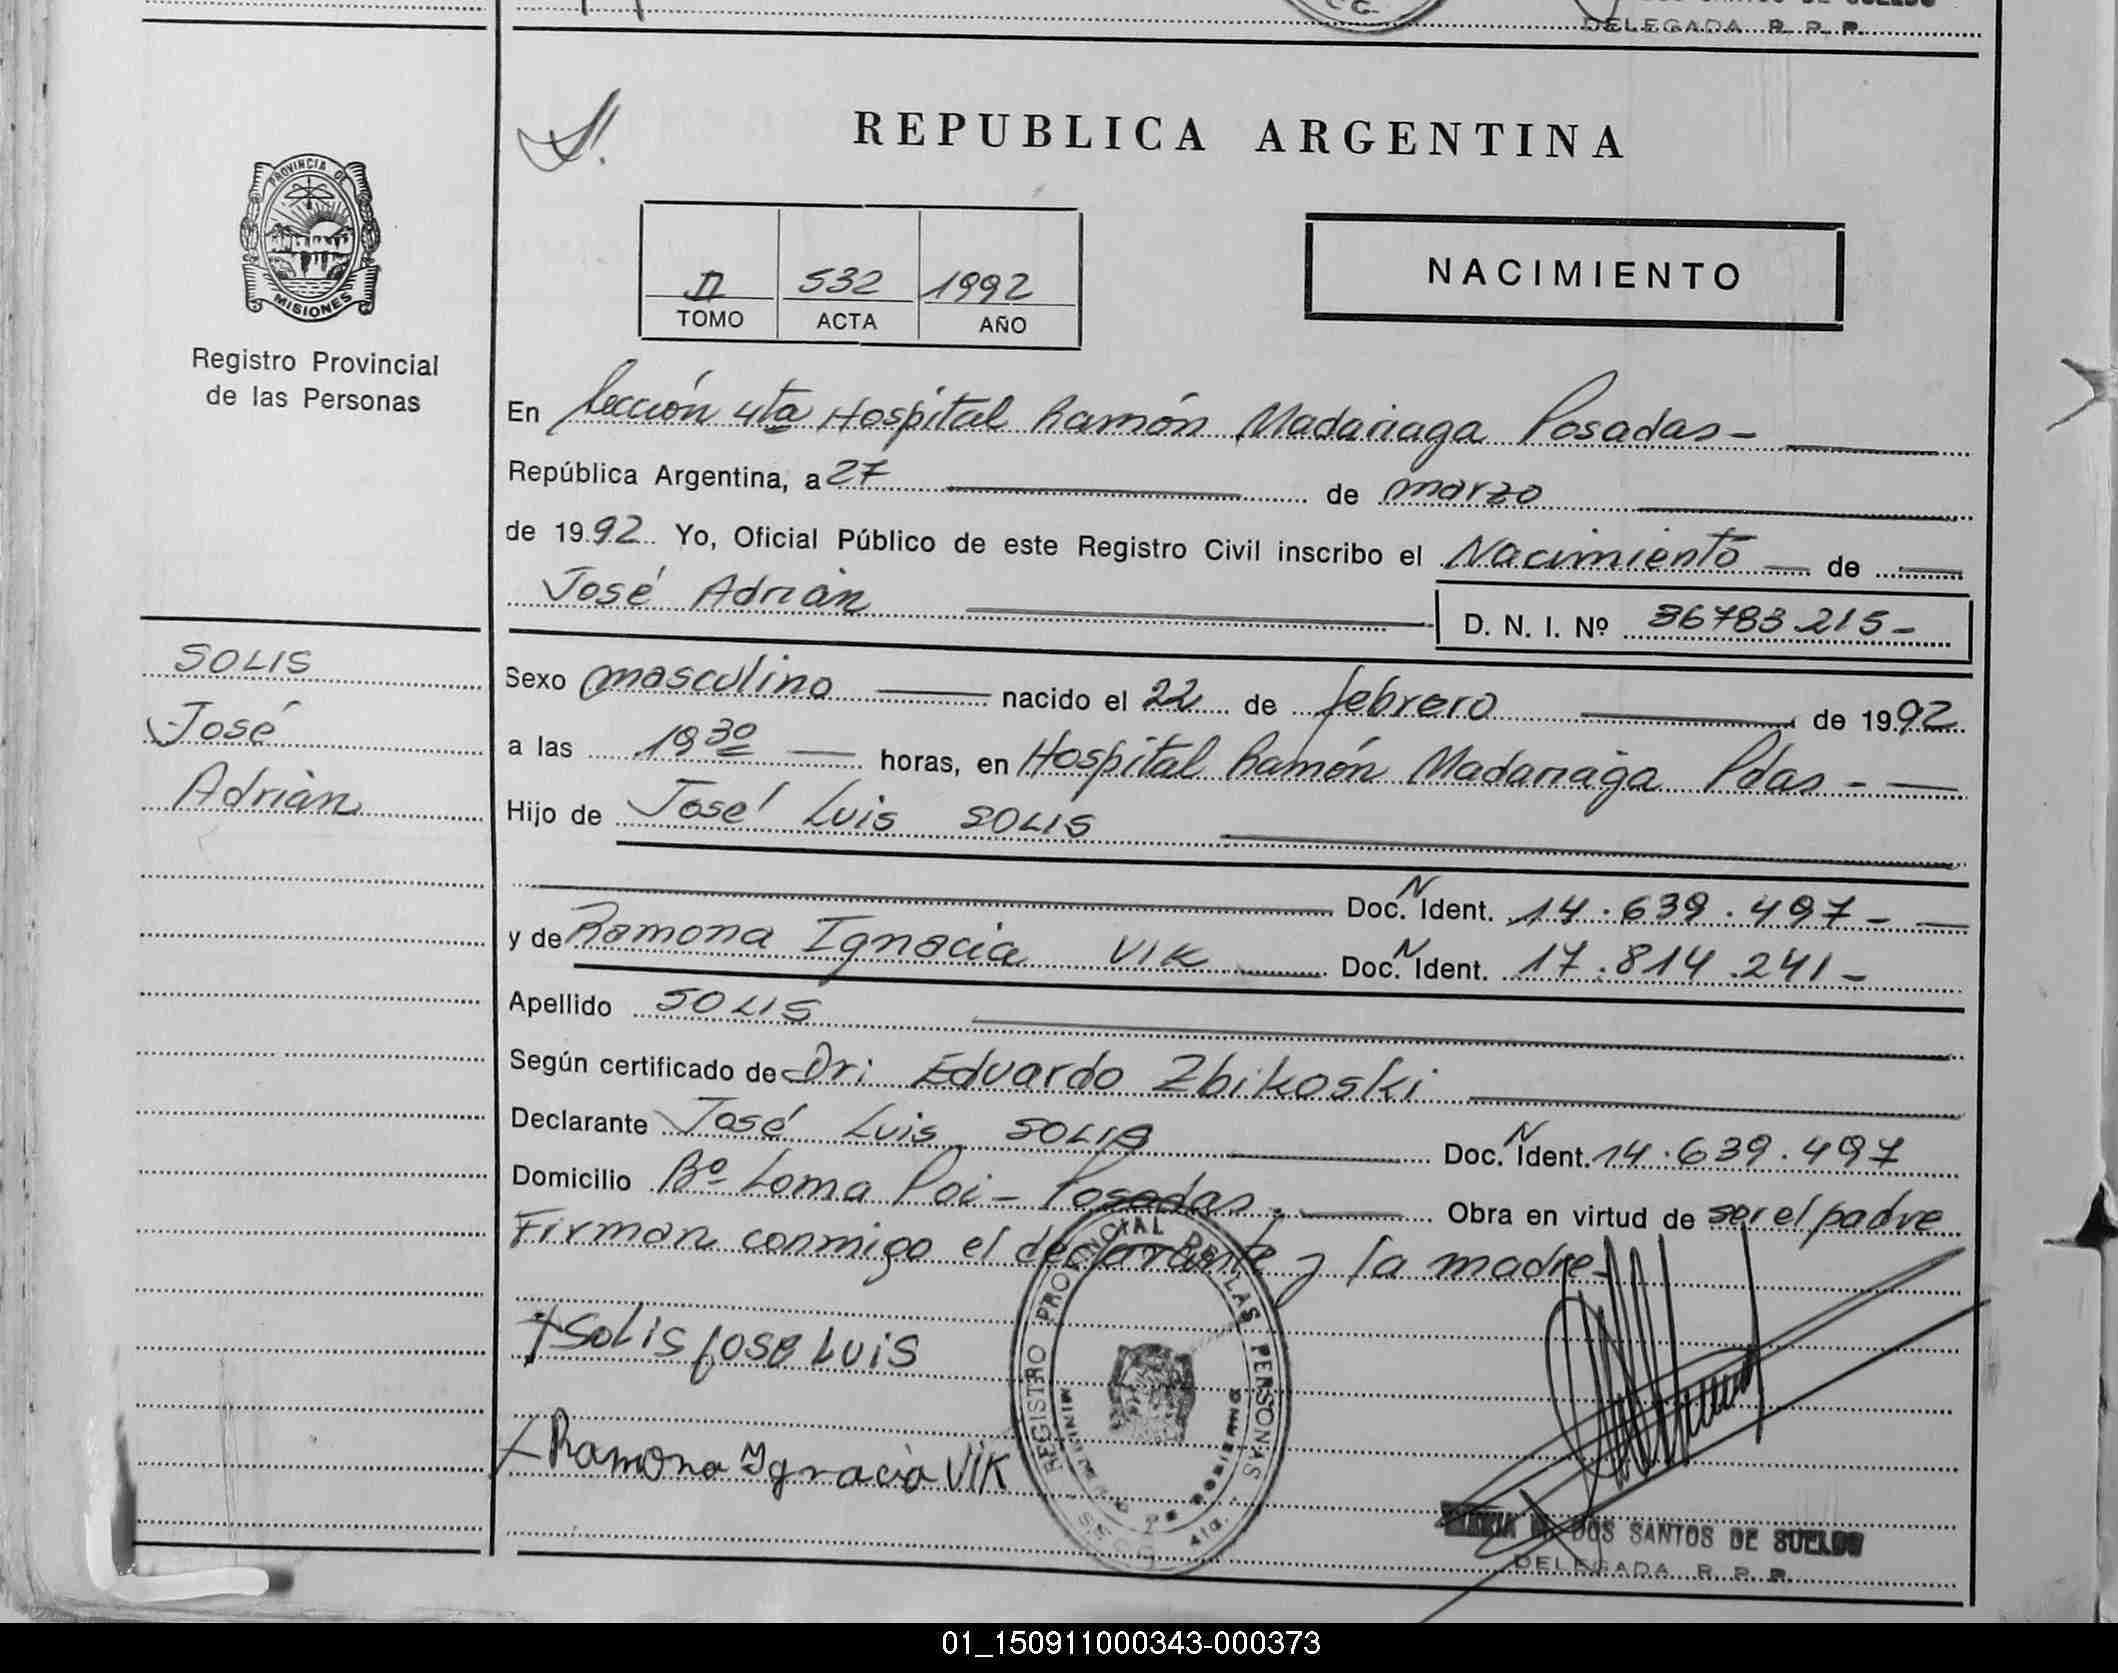 DELEGADA R. P. P.
REPUBLICA ARGENTINA
PROVINCIA DE
MISIONES
Registro Provincial
de las Personas
II 532 1992
TOMO ACTA AÑO
NACIMIENTO
En Sección 4ta Hospital Ramón Madariaga Posadas -
República Argentina, a 27 de marzo
de 1992. Yo, Oficial Público de este Registro Civil inscribo el Nacimiento de
José Adrián
D. N. I. Nº 36783.215-
SOLIS
José
Adrián
Sexo masculino nacido el 22 de febrero de 1992
a las 19 30 horas, en Hospital Ramón Madariaga Pdas -
Hijo de José Luis SOLIS
Doc. N Ident. 14.639.497-
y de Ramona Ignacia VIK Doc. N Ident. 17.814.241-
Apellido SOLIS
Según certificado de Dr. Eduardo Zbikoski
Declarante José Luis SOLIS Doc. N Ident. 14.639.497
Domicilio Bº Loma Poi - Posadas. Obra en virtud de ser el padre
Firman conmigo el declarante y la madre-
Solis Jose Luis
Ramona Ignacia Vik
REGISTRO PROVINCIAL DE LAS PERSONAS
MARIA DOS SANTOS DE SUELDO
DELEGADA R. P. P.
01_150911000343-000373